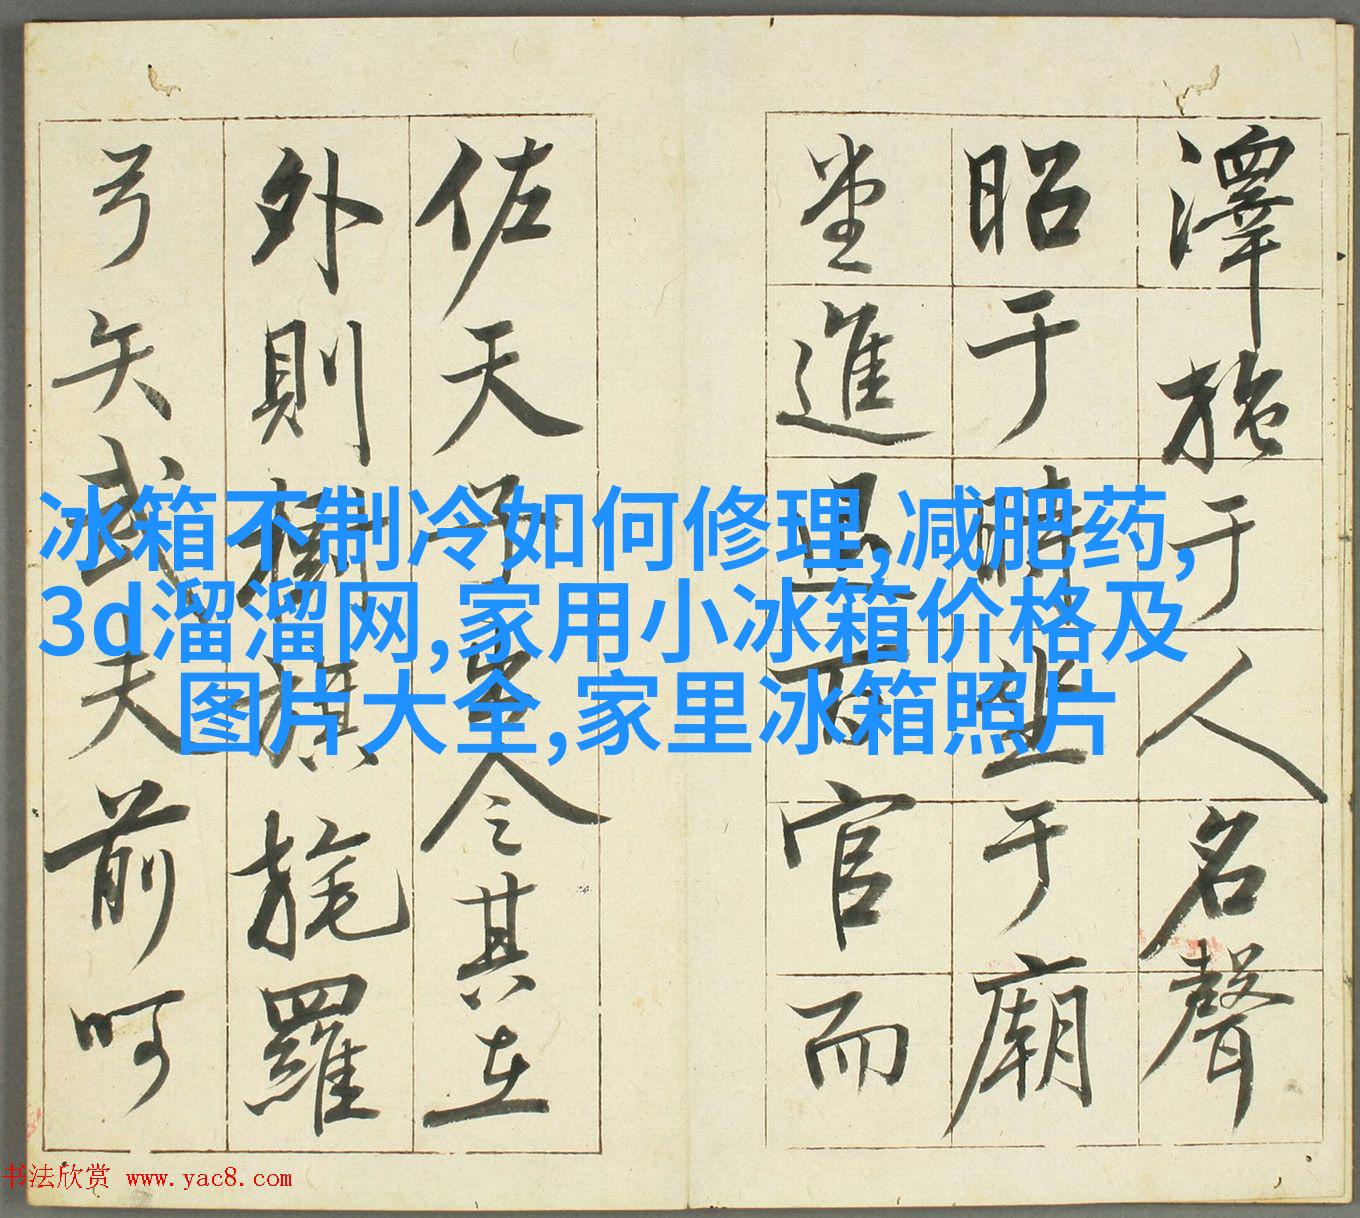 澤施于人名聲
昭于時坐于廟
堂進退百官而
佐天子出令其在
外則樹旗旄羅
弓矢武夫前呵
冰箱不制冷如何修理,减肥药,
3d溜溜网,家用小冰箱价格及
图片大全,家里冰箱照片
书法欣赏 www.yac8.com